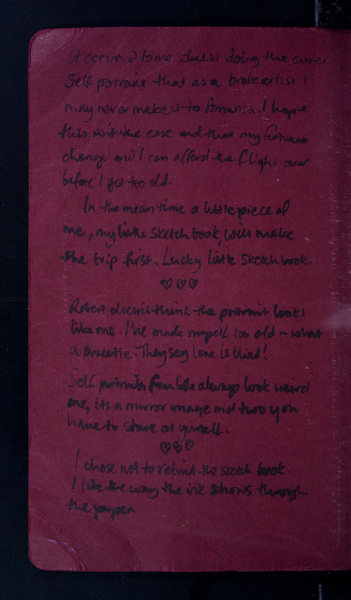 It occured to me whilst doing the cover
self portrait that as a broke artist I
may never make it to America. I hope
this isn't the case and that my fortunes
change and I can afford the flight over
before I get too old.
In the mean time a little piece of
me, my little sketch book, will make
the trip first. Lucky little sketch book.
Robert doesn't think the portrait looks
like me. I've made myself too old ~ what
a sweetie. They say love is blind!
Self portraits from life always look weird
one, its a mirror image and two you
have to stare at yourself.
I chose not to rebind the sketch book.
I like the way the ink shows through
the paper